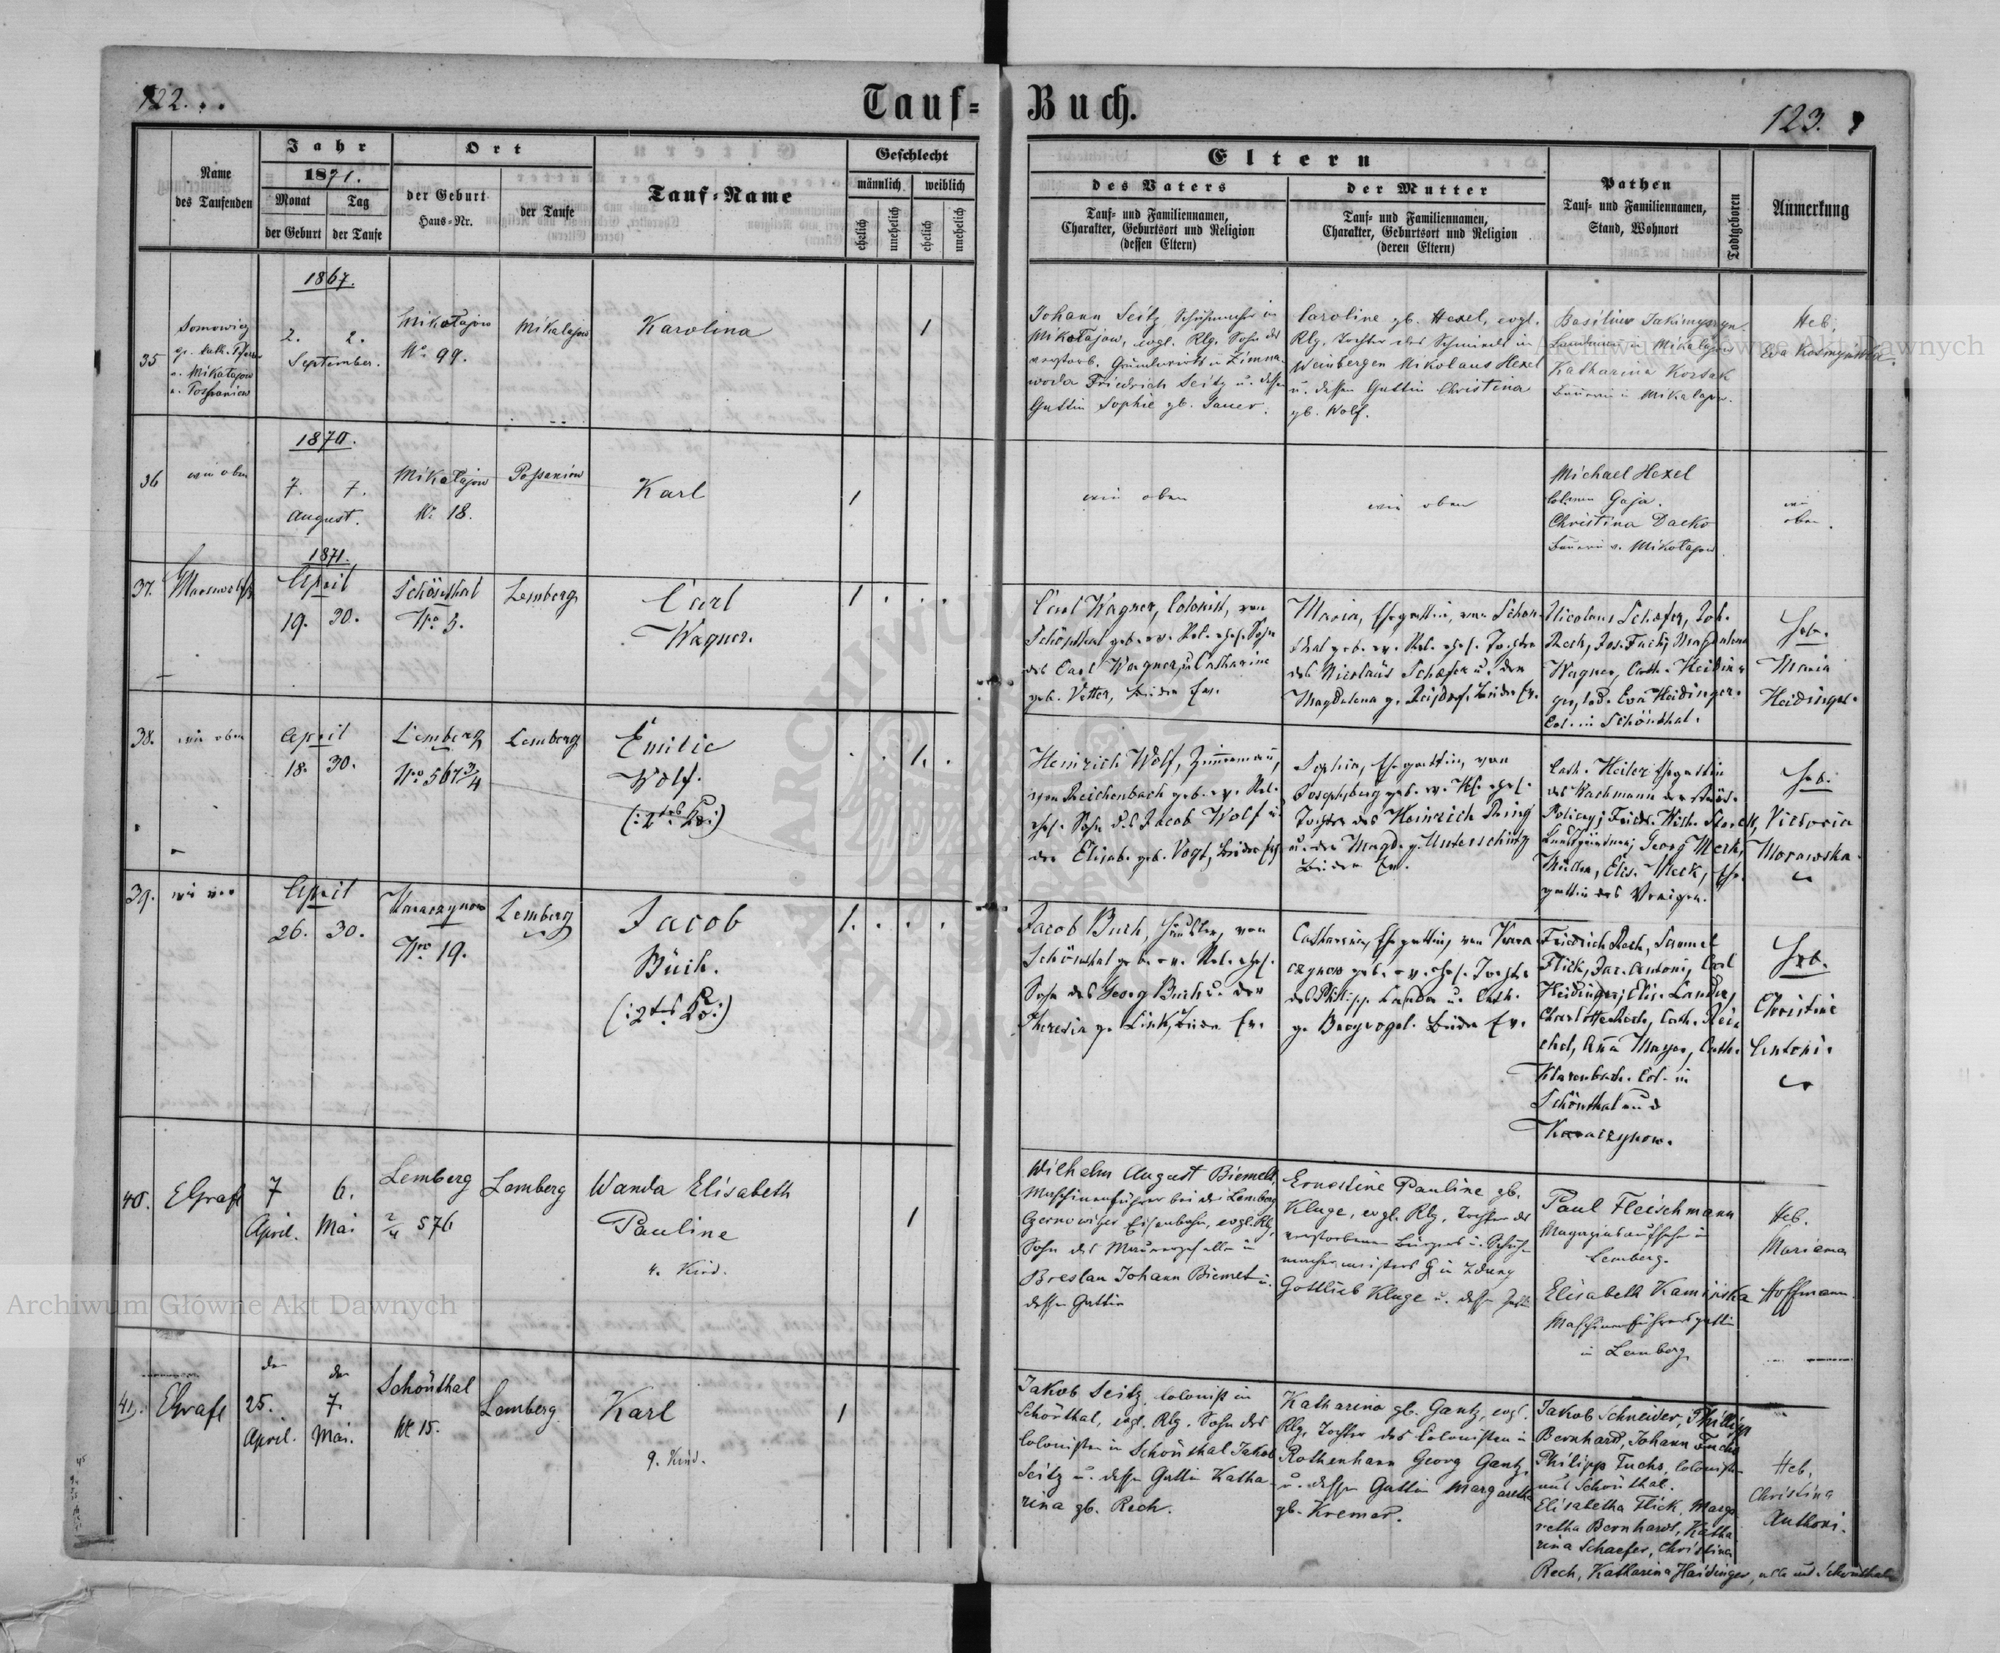 122.
Tauf-Buch.
123.
Name
des Taufenden
Jahr
1871.
Monat
Tag
der Geburt
der Taufe
Ort
der Geburt
Haus-Nr.
der Taufe
Tauf-Name
Geschlecht
männlich
weiblich
ehelich
unehelich
ehelich
unehelich
Eltern
des Vaters
Tauf- und Familiennamen,
Charakter, Geburtsort und Religion
(dessen Eltern)
der Mutter
Tauf- und Familiennamen,
Charakter, Geburtsort und Religion
(deren Eltern)
Pathen
Tauf- und Familiennamen,
Stand, Wohnort
Todtgeboren
Anmerkung
1867.
35
2. 2.
September.
Mikołajow
No 99.
Mikalajow
Karolina
1
Johann Seitz, Schuhmacher in
Mikołajow, evgl. Rlg. Sohn des
verstorb. Grundwirths in Zimna
woda Friedrich Seitz u. dessen
Gattin Sophie gb. Sauer.
Caroline gb. Hexel, evgl.
Rlg. Tochter des Schmieds in
Weinbergen Mikolaus Hexel
u. dessen Gattin Christina
gb. Wolf.
Katharina Korsak
Bäuerin in Mikolajow.
Heb.
Eva
1870.
36
wie oben
7. 7.
August.
Mikołajow
No 18.
Karl
1
wie oben
wie oben
Michael Hexel
Christina Dacko
Bäuerin v. Mikołajow.
wie
oben.
1871.
37.
April
19. 30.
Schönthal
Nro 3.
Lemberg
Carl
Wagner.
1
Carl Wagner, Colonist, von
Schönthal geb. ev. Rel. ehel. Sohn
des Carl Wagner, u. Catharine
geb. Vetter, beide Ev.
Maria, Ehegattin, von Schön-
thal geb. ev. Rel. ehel. Tochter
des Nicolaus Schaefer u. der
Magdalena g. beide Ev.
Nicolaus Schaefer, Joh.
Rech, Jos. Magdalena
Wagner, Cath. Heidin-
ger, Eva Heidinger.
Col. in Schönthal.
Heb.
Maria
Heidinger.
38.
wie oben
April
18. 30.
Lemberg
Nro 567 3/4
Lemberg
Emilie
Wolf.
(:2tes Kd:)
1.
Heinrich Wolf, Zimmermann,
von Reichenbach geb. ev. Rel.
ehel. Sohn des Jacob Wolf u.
der Elisab. geb. Vogt, beide Ev.
Sophia, Ehegattin, von
Josephsberg geb. ev. Rel. ehel.
Tochter des Heinrich Ring
u. der Magd. g. Unterschütz
beide Ev.
Cath. Heiler Ehegattin
des Wachmann der städt.
Polizey; Friedr. Wilh.
Georg Merk,
Müller, Elis. Merk, Ehe-
gattin des Vorigen.
Heb.
Victoria
Morawska.
39.
wie vor
April
26. 30.
Karaczynow
Nro 19.
Lemberg
Jacob
Buch.
(:2tes Kd:)
1.
Jacob Buch, Häusler, von
Schönthal geb. ev. Rel. ehel.
Sohn des Georg Buch u. der
Theresia g. Link, beide Ev.
Catharina, Ehegattin, von Kara-
czynow geb. ev. ehel. Tochter
des Philipp Lander u. Cath.
g. beide Ev.
Friedrich Rech, Samuel
Flick, Jac. Antoni, Carl
Heidinger; Elis. Lander,
Charlotte Rech, Cath. Rei-
chel, Anna Mayer, Cath.
Klarenbach. Col. in
Schönthal und
Karaczynow.
Heb.
Christine
Antoni.
40.
EGrafl
7 6.
April. Mai
Lemberg
2/4 576
Lemberg
Wanda Elisabeth
Pauline
4. Kind.
1
Wilhelm August Biemelt,
Maschinenführer bei der Lemberg
Czernowitzer Eisenbahn, evgl. Rlg.
Sohn des Maurergesellen in
Breslau Johann Biemelt u.
dessen Gattin
Ernestine Pauline gb.
Kluge, evgl. Rlg., Tochter des
verstorbenen Bürgers u. Schuh-
machermeisters in Zduny
Gottlieb Kluge u. dessen Gattin
Paul Fleischmann
Magazinsaufseher in
Lemberg.
Elisabeth Kamińska
Maschinenführersgattin
in Lemberg
Heb.
Mariana
Hoffmann.
41.
EGrafl
den 25.
April.
den 7.
Mai.
Schönthal
No 15.
Lemberg
Karl
9. Kind.
1
Jakob Seitz, Colonist in
Schönthal, evgl. Rlg. Sohn des
Colonisten in Schönthal Jakob
Seitz u. dessen Gattin Katha-
rina gb. Rech.
Katharina gb. Gantz, evgl.
Rlg. Tochter des Colonisten in
Rothenhann Georg Gantz,
u. dessen Gattin Margaretha
gb. Kremer.
Jakob Schneider, Philipp
Bernhard, Johann Fuchs
Philipp Fuchs, Colonisten
aus Schönthal.
Elisabetha Flick, Marga-
retha Bernhard, Katha-
rina Schaefer, Christina
Rech, Katharina Haidinger, alle aus Schönthal.
Heb.
Christina
Anthoni.
Archiwum Główne Akt Dawnych
Archiwum Główne Akt Dawnych